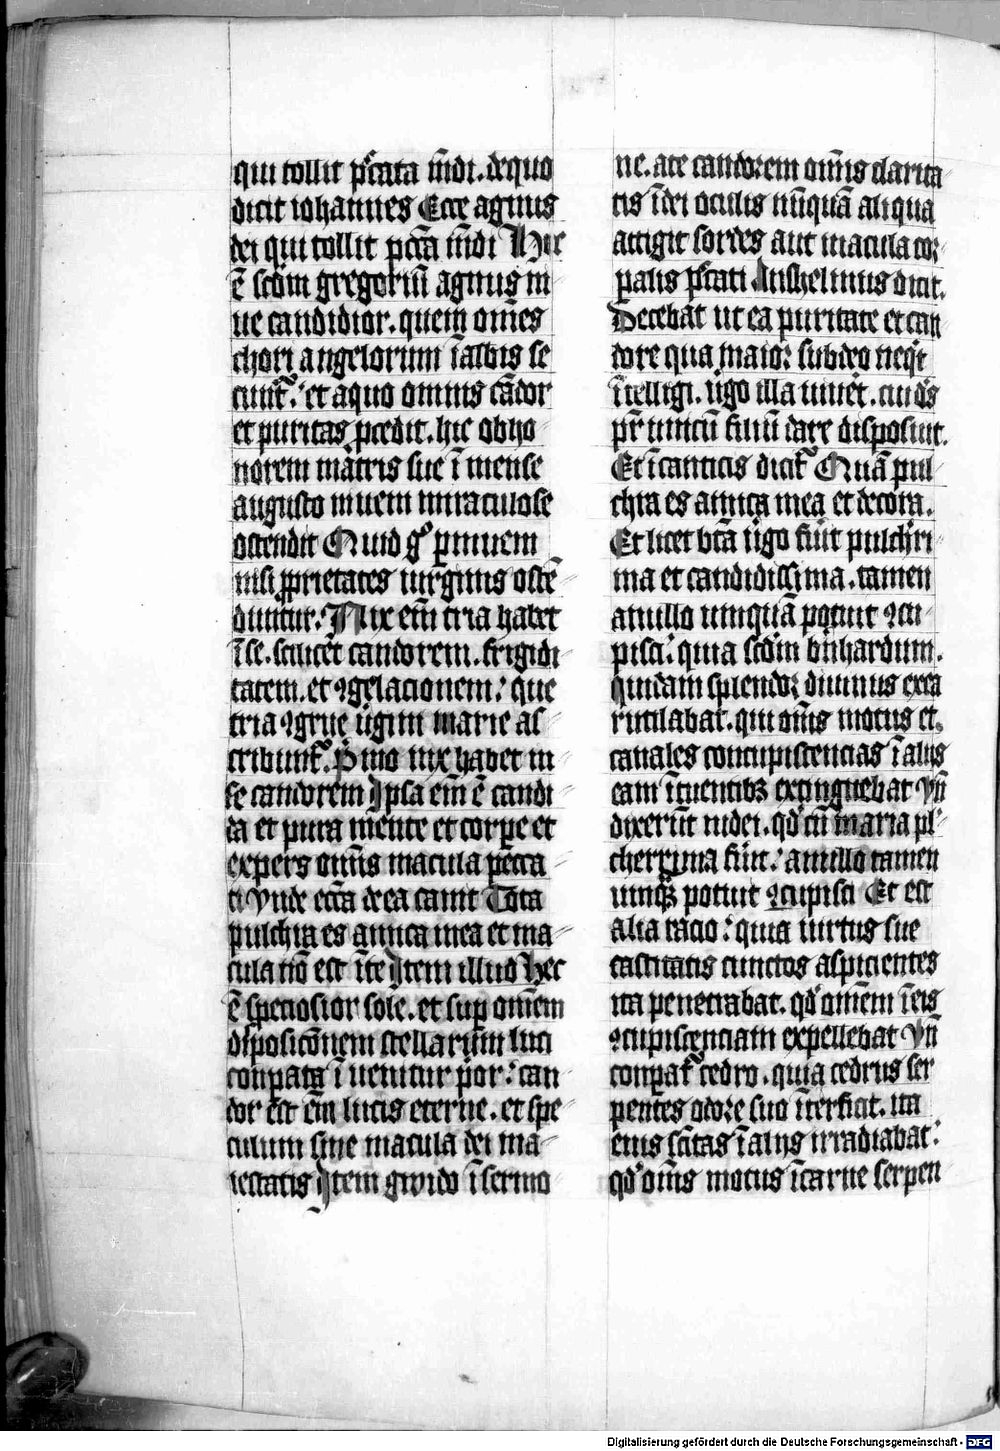 qui tollit pcc̄ata mūdi. dequo
dicit iohannes Ecce agnus
dei qui tollit pctā mūdi Hic
ē scdm̄ gregoriū agnus ni
ue candidior. quem om̄es
chori angelorum ī albis se
cunt᷑. et aquo omnis cādor
et puritas pcedit. hic ob ho
norem matris sue ī mense
augusto niuem miraculose
ostendit Quid gͦ p niuem
nisi pprietates uirginis ostē
duntur. Nix em̄ tria habet
ī se. scilicet candorem. frigidi
tatem. et ꝯgelacionem. que
tria ꝯgrue ūgini marie as
cribunt᷑. Pͥmo nix habet in
se candorem Ipsa em̄ ē candi
da et pura mente et corpe et
expers om̄is macula pecca
ti Vnde ecc̄a de ea canit Tota
pulchra es amica mea et ma
cula nō est ī te Item illud Hec
ē speciosior sole. et sup om̄em
disposicōnem stellarum luci
conpata ī uenitur pͥor. can
dor est em̄ lucis eterne. et spe
culum sine macula dei ma
iestatis Item gwido ī sermo
ne. a te candorem om̄is clarita
tis ī dei oculis nūquā aliqua
attigit sordes aut macula cor
palis pcc̄ati Anshelmus dicit.
Decebat ut ea puritate et can
dore qua maior sub deo neq̄t
ītelligi. ūgo illa niteret. cui ds̄
pr̄ unicū filiū dare disposuit.
Et ī canticis dicit᷑ Quā pul
chra es amica mea et decora.
Et licet btā ūgo fuit pulchri
ma et candidissima. tamen
a nullo umquā potuit ꝯcu
pisci. quia scdm̄ bn̄hardum.
quidam splendor diuinus ex ea
rutilabat. qui om̄s motus et
canales concupiscencias ī aliis
eam ītuentibꝫ extinguebat Vn̄
dixerūt iudei. qd̓ cū maria pl
cherrima fuit. a nullo tamen
umqꝫ potuit ꝯcupisci Et est
alia racio. quia uirtus sue
castitatis cunctos aspicientes
ita penetrabat. qd̓ om̄em ī eis
ꝯcupiscenciam expellebat Vn̄
conpat᷑ cedro. quia cedrus ser
pentes odore suo īterficit. ita
eius sc̄itas ī aliis irradiabat.
qd̓ om̄s motus ī carne serpen
Digitalisierung gefördert durch die Deutsche Forschungsgemeinschaft - DFG